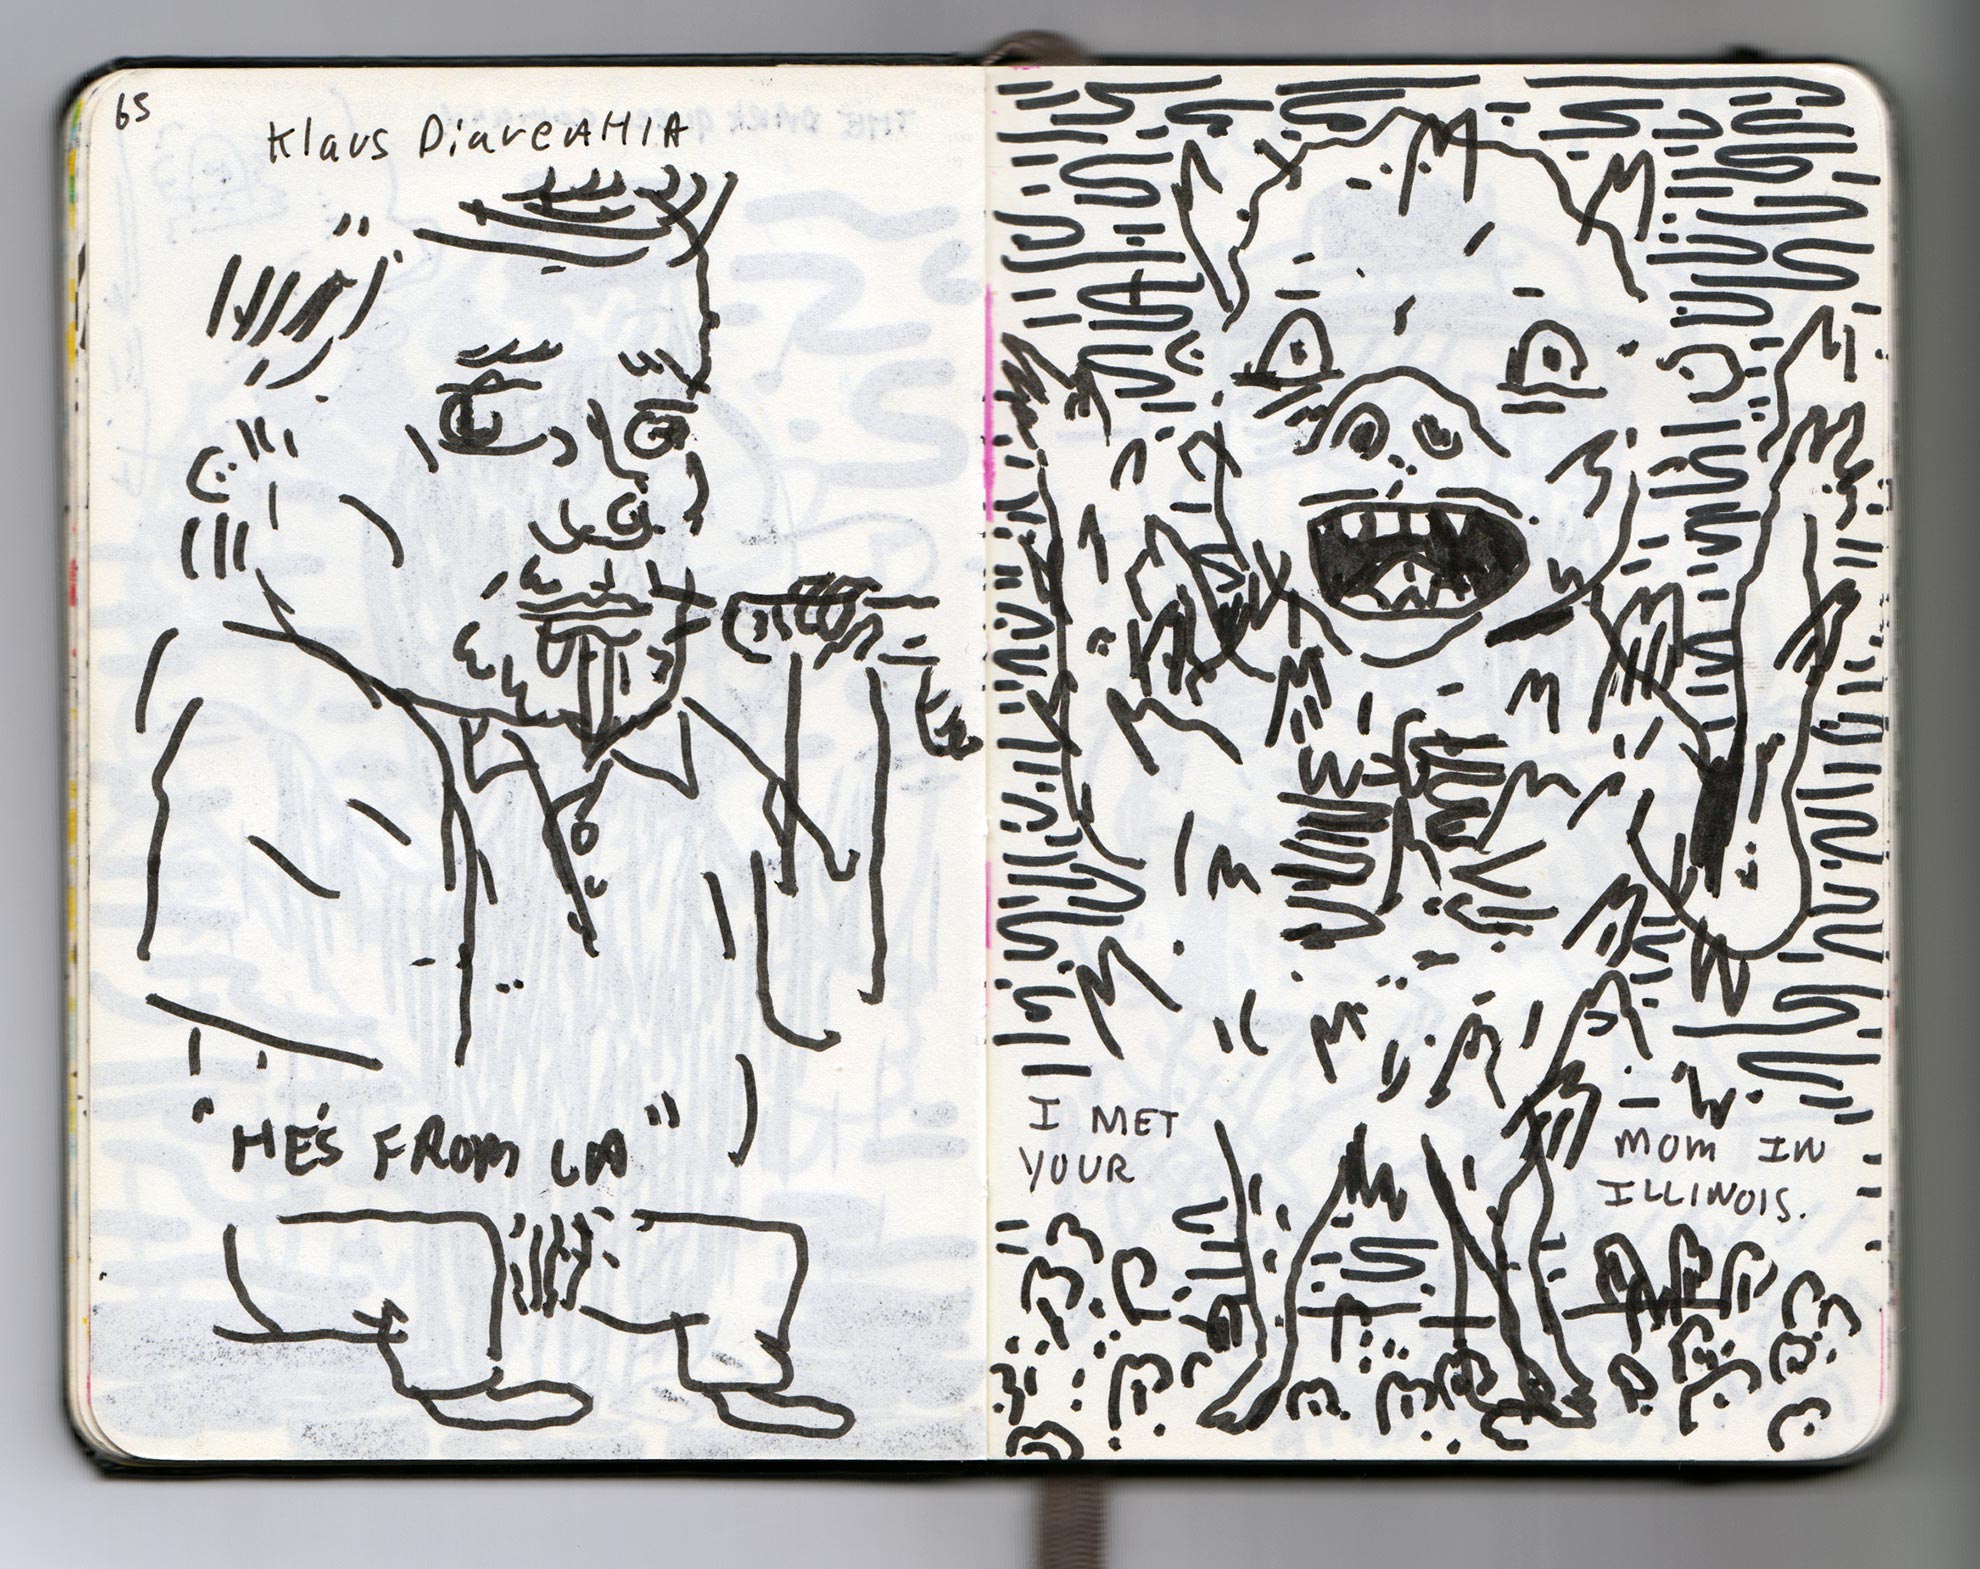 65
Klaus DiareAHIA
"HE'S FROM LA"
I MET
YOUR
MOM IN
ILLINOIS.